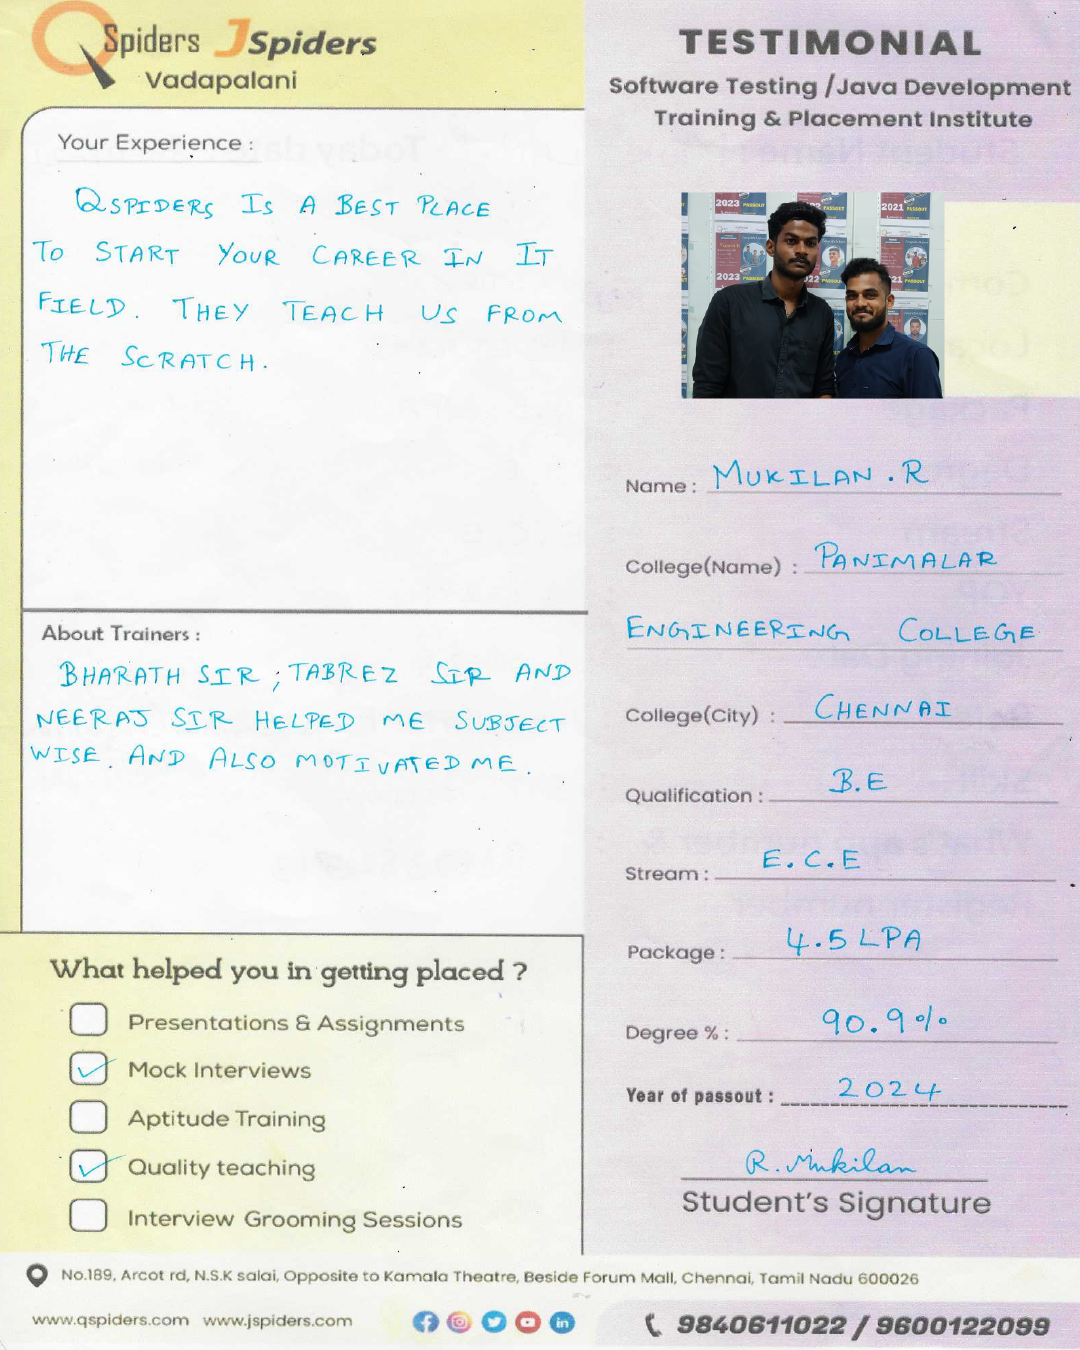 QSpiders JSpiders
Vadapalani
Your Experience :
QSPIDERS IS A BEST PLACE
TO START YOUR CAREER IN IT
FIELD. THEY TEACH US FROM
THE SCRATCH.
About Trainers :
BHARATH SIR ; TABREZ SIR AND
NEERAJ SIR HELPED ME SUBJECT
WISE. AND ALSO MOTIVATED ME.
What helped you in getting placed ?
Presentations & Assignments
Mock Interviews
Aptitude Training
Quality teaching
Interview Grooming Sessions
TESTIMONIAL
Software Testing /Java Development
Training & Placement Institute
2023 PASSOUT
2021 PASSOUT
2023 PASSOUT
Name : MUKILAN . R
College(Name) : PANIMALAR
ENGINEERING COLLEGE
College(City) : CHENNAI
Qualification : B.E
Stream : E.C.E
Package : 4.5 LPA
Degree % : 90.9%
Year of passout : 2024
R. Mukilan
Student's Signature
No.189, Arcot rd, N.S.K salai, Opposite to Kamala Theatre, Beside Forum Mall, Chennai, Tamil Nadu 600026
www.qspiders.com www.jspiders.com
9840611022 / 9600122099